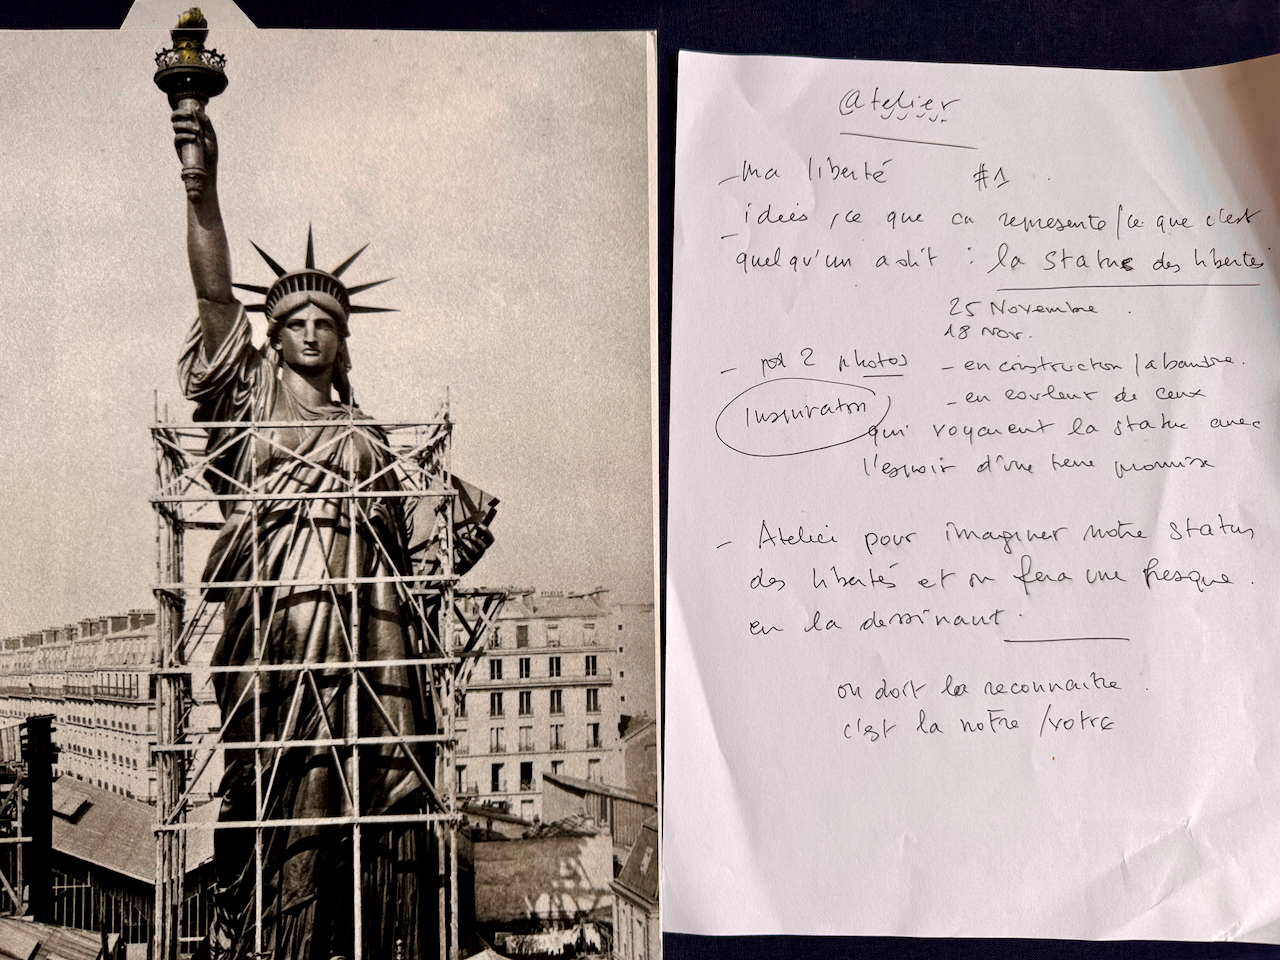 @telier
- ma liberté #1
- idées, ce que ca represente / ce que c'est
quelqu'un a dit : la statue des libertés
25 Novembre.
18 Nov.
- 2 photos - en construction /
Inspiration - en couleur de ceux
qui voyaient la statue avec
l'espoir d'une terre promise
- Atelier pour imaginer notre statue
des libertés et on fera une fresque.
en la dessinant.
on doit la reconnaitre.
c'est la notre / votre